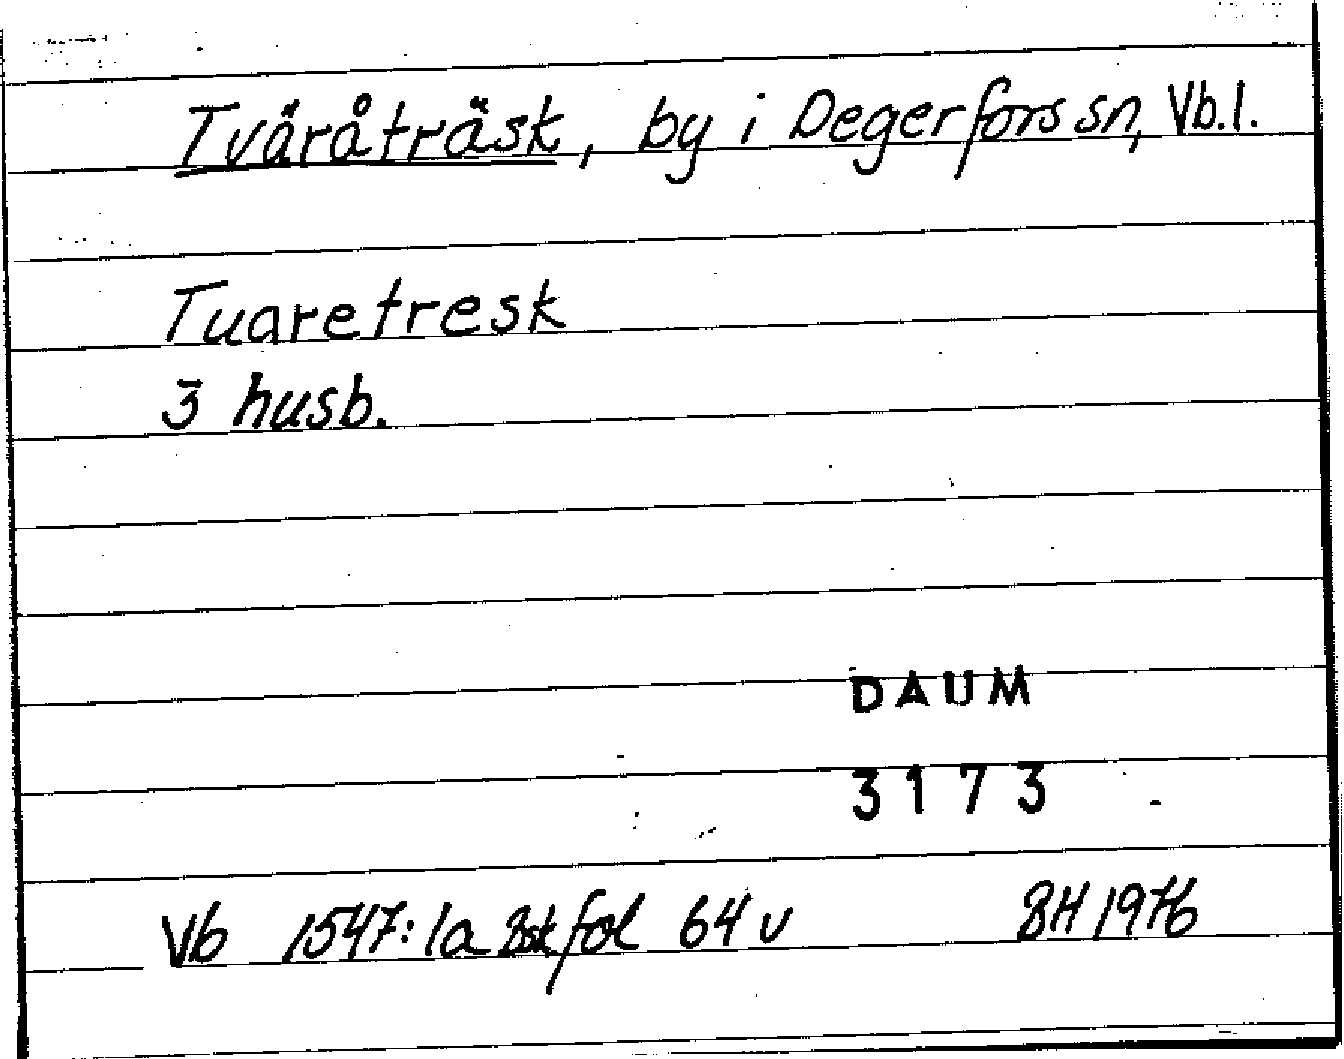 Tväråträsk, by i Degerfors sn, Vb.l.
Tuaretresk
3 husb.
DAUM
3173
Vb 1547:1a Bsk fol 64 v BH 1976